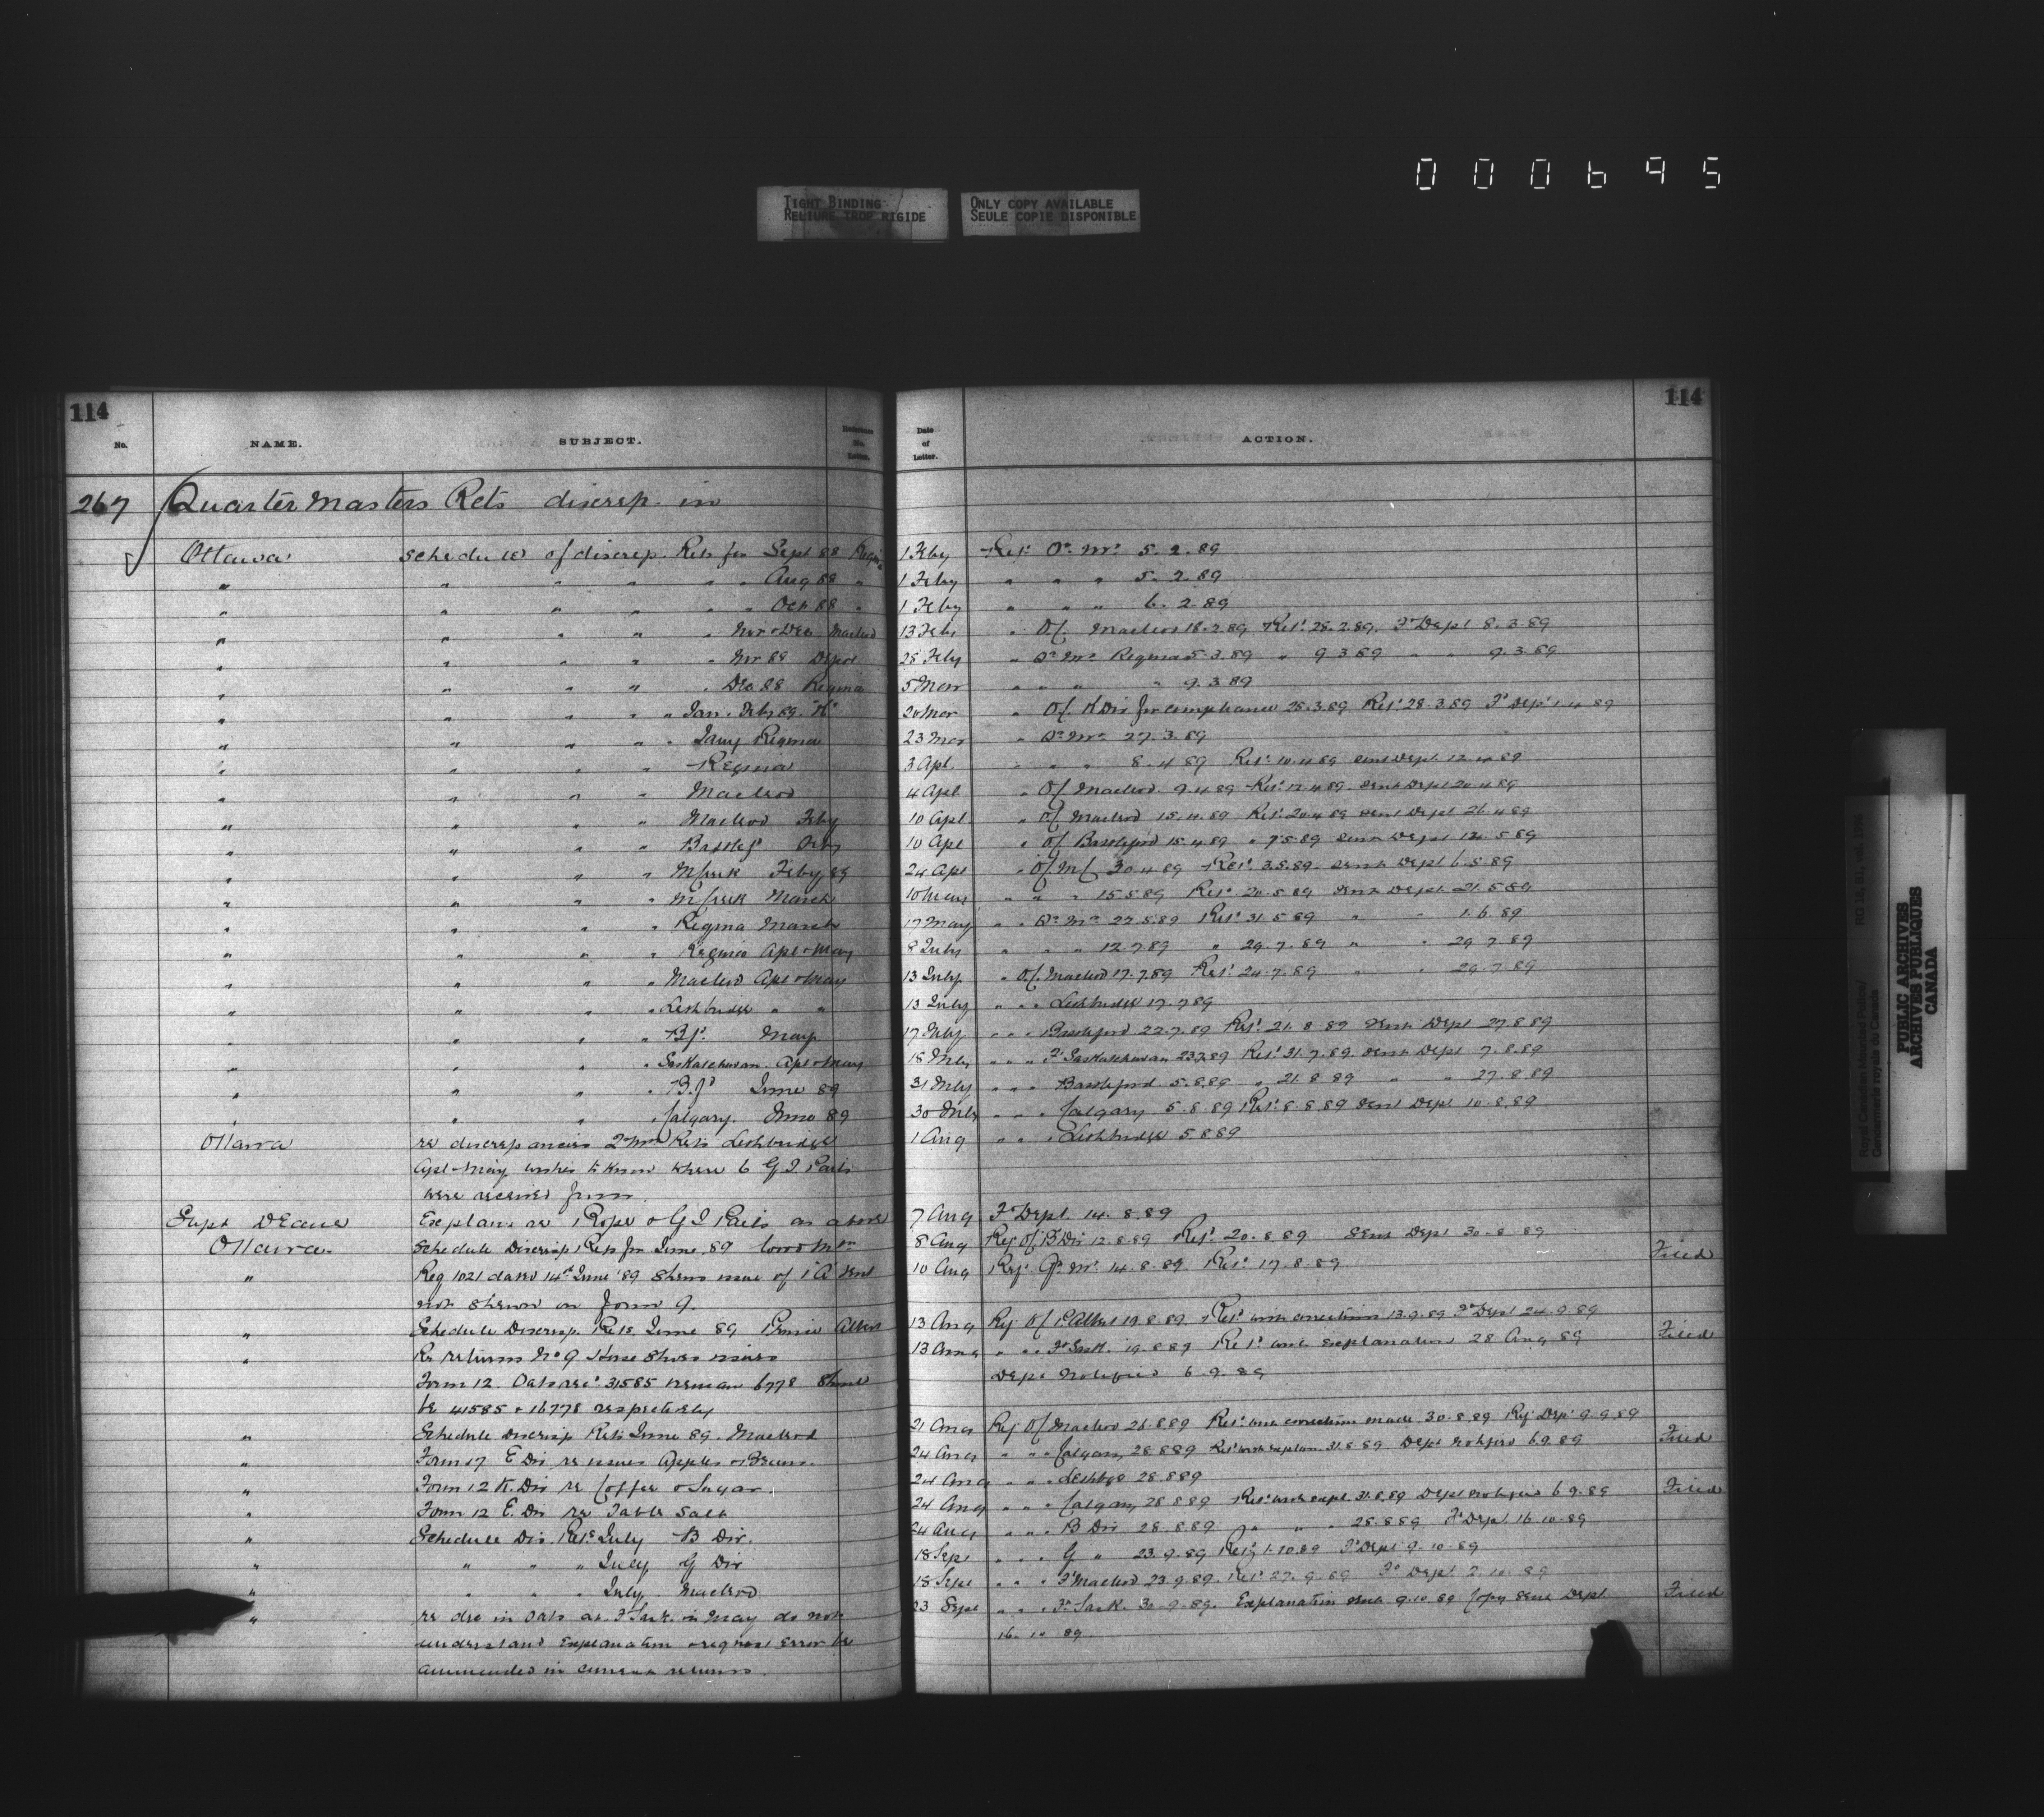 0 0 0 6 9 5
TIGHT BINDING
RELIURE TROP RIGIDE
ONLY COPY AVAILABLE
SEULE COPIE DISPONIBLE
114
No.
NAME.
SUBJECT.
267 Quarter Masters Rets discrep. in
Ottawa Schedule of discrep. Rets for Sept 88 Regina
" " " " " " Aug 88 "
" " " " " " Oct 88 "
" " " " " Nov & Dec Macleod
" " " " " Nov 88 Depot
" " " " " Dec 88 Regina
" " " " " Jan. Feby 89. "K"
" " " " " Jany Regina
" " " " Regina
" " " " Macleod
" " " " Macleod Feby
" " " " Battlefd
" " " " Feby 89
" " " " March
" " " " Regina March
" " " " Regina Apl & May
" " " " Macleod Apl & May
" " " " Lethbridge " "
" " " " Bfd. May
" " " " Saskatchewan. Apl & May
" " " " Bfd June 89
" " " " Calgary. June 89
Ottawa re discrepancies Rets Lethbridge
Apl - May wishes to know where 6 G I Pails
were received from.
Supt Deane Explains re Rope & G I Pails as above
Ottawa Schedule Discrep Rets for June 89
" Req 1021 dated 14th June '89 shews issue of 1 A tent
not shewn on form 9.
" Schedule Discrep. Rets. June 89 Prince Albert
" Re returns No 9 Horse Shoes issues
Form 12. Oats recd 31585 remain 6778 should
be 41585 & 16778 respectively
" Schedule Discrep Rets June 89. Macleod
" Form 17 E Div re issues Apples & Prunes.
" Form 12 K. Div re Coffee & Sugar.
" Form 12 E. Div re Table Salt
" Schedule Dis. Rets July B Div.
" " " " July G Div
" " " " July. Macleod
" re dis in Oats at Ft Sask. in May do not
understand explanation & request error be
ammended in current returns.
114
Date
of
Letter.
ACTION.
1 Feby Ret. Qr. Mr. 5. 2. 89
1 Feby " " " 5. 2. 89
1 Feby " " " 6. 2. 89
13 Feby " Of. Macleod 18.2.89 Retd 28.2.89. Fd Dept 8.3.89
28 Feby " Qr Mr Regina 5.3.89 " 9 3 89 " " 9.3.89
5 Mar " " " " 9.3.89
20 Mar " Of. K Div for compliance 25.3.89 Retd 28.3.89 Fd Dept 1.4.89
23 Mar " Qr Mr 27.3.89
3 Apl. " " " 8.4 89 Retd 10.4.89 Sent Dept. 12.4.89
4 Apl " Of. Macleod. 9.4.89 Retd 17.4.89. Sent Dept 20.4.89
10 Apl " Of. Macleod 15.4.89 Retd 20.4.89 Sent Dept 26.4.89
10 Apl " Of Battleford 15.4.89 " 7.5.89 Sent Dept 5 89
24 Apl " 30.4.89 Retd 3.5.89. Sent Dept 6.5.89
" " " 15.5.89 Retd 20.5.89 Sent Dept 21.5.89
17 May " " Qr Mr 22.5.89 Retd 31.5.89 " " 1.6.89
8 July " " " 12.7.89 " 29.7.89 " " 29.7.89
13 July " Of. Macleod 17.7.89 Retd 24.7.89 " " 29.7.89
13 July " " " Lethbridge 17.7.89
17 July " " " Battleford 22.7.89 Retd 21.8.89 Sent Dept 27.8.89
18 July " " " Ft Saskatchewan 23.7.89 Retd 31.7.89. Sent Dept 7.8.89
31 July " " " Battleford 5.8.89 " 21.8.89 " " 27.8.89
30 July " " " Calgary 5.8.89 Retd 8.8.89 Sent Dept 10.8.89
1 Aug " " " Lethbridge 5 8 89
7 Aug Fd Dept. 14.8.89
8 Aug Ref Of. B Div 12.8.89 Retd 20.8.89 Sent Dept 30.8.89
10 Aug Ref. Qr. Mr. 14.8.89. Retd 17.8.89 Filed
13 Aug Ref Of P. Albert 19.8.89. Retd with corrections 13.9.89 Fd Dept 24.9.89
13 Aug " " " Ft Sask. 19.8.89 Retd with explanation 28 Aug 89 Filed
Dept Notified 6.9.89
21 Aug Ref Of Macleod 26.8.89 Retd with correction made 30.8.89 Ref Dept 9.9.89
24 Aug " " " Calgary 28.8.89 Retd with explan. 31.8.89 Dept notified 6.9.89 Filed
24 Aug " " " Lethbge 28.8.89
24 Aug " " " Calgary 28.8.89 Retd with expl. 31.8.89 Dept notified 6.9.89 Filed
24 Aug " " " B Div 28.8.89 " " " 28.8.89 Fd Dept. 16.10.89
18 Sept " " " G " 23.9.89 Retd 1.10.89 Fd Dept 9.10.89
18 Sept " " " Ft Macleod 23.9.89. Retd 27.9.89 Fd Dept 2.10.89
23 Sept " " " Ft Sask. 30.9.89. Explanation 9.10.89 Copy sent Dept. Filed
16.10.89.
RG 18, B1, vol. 1096
Royal Canadian Mounted Police/
Gendarmerie royale du Canada
PUBLIC ARCHIVES
ARCHIVES PUBLIQUES
CANADA